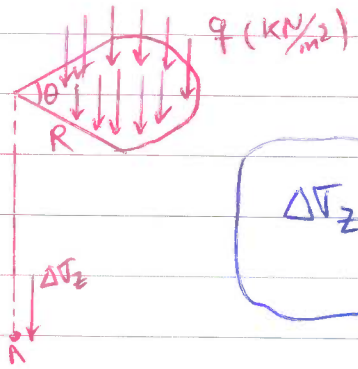 q (KN/m2)
θ
R
ΔσZ
ΔσZ
A